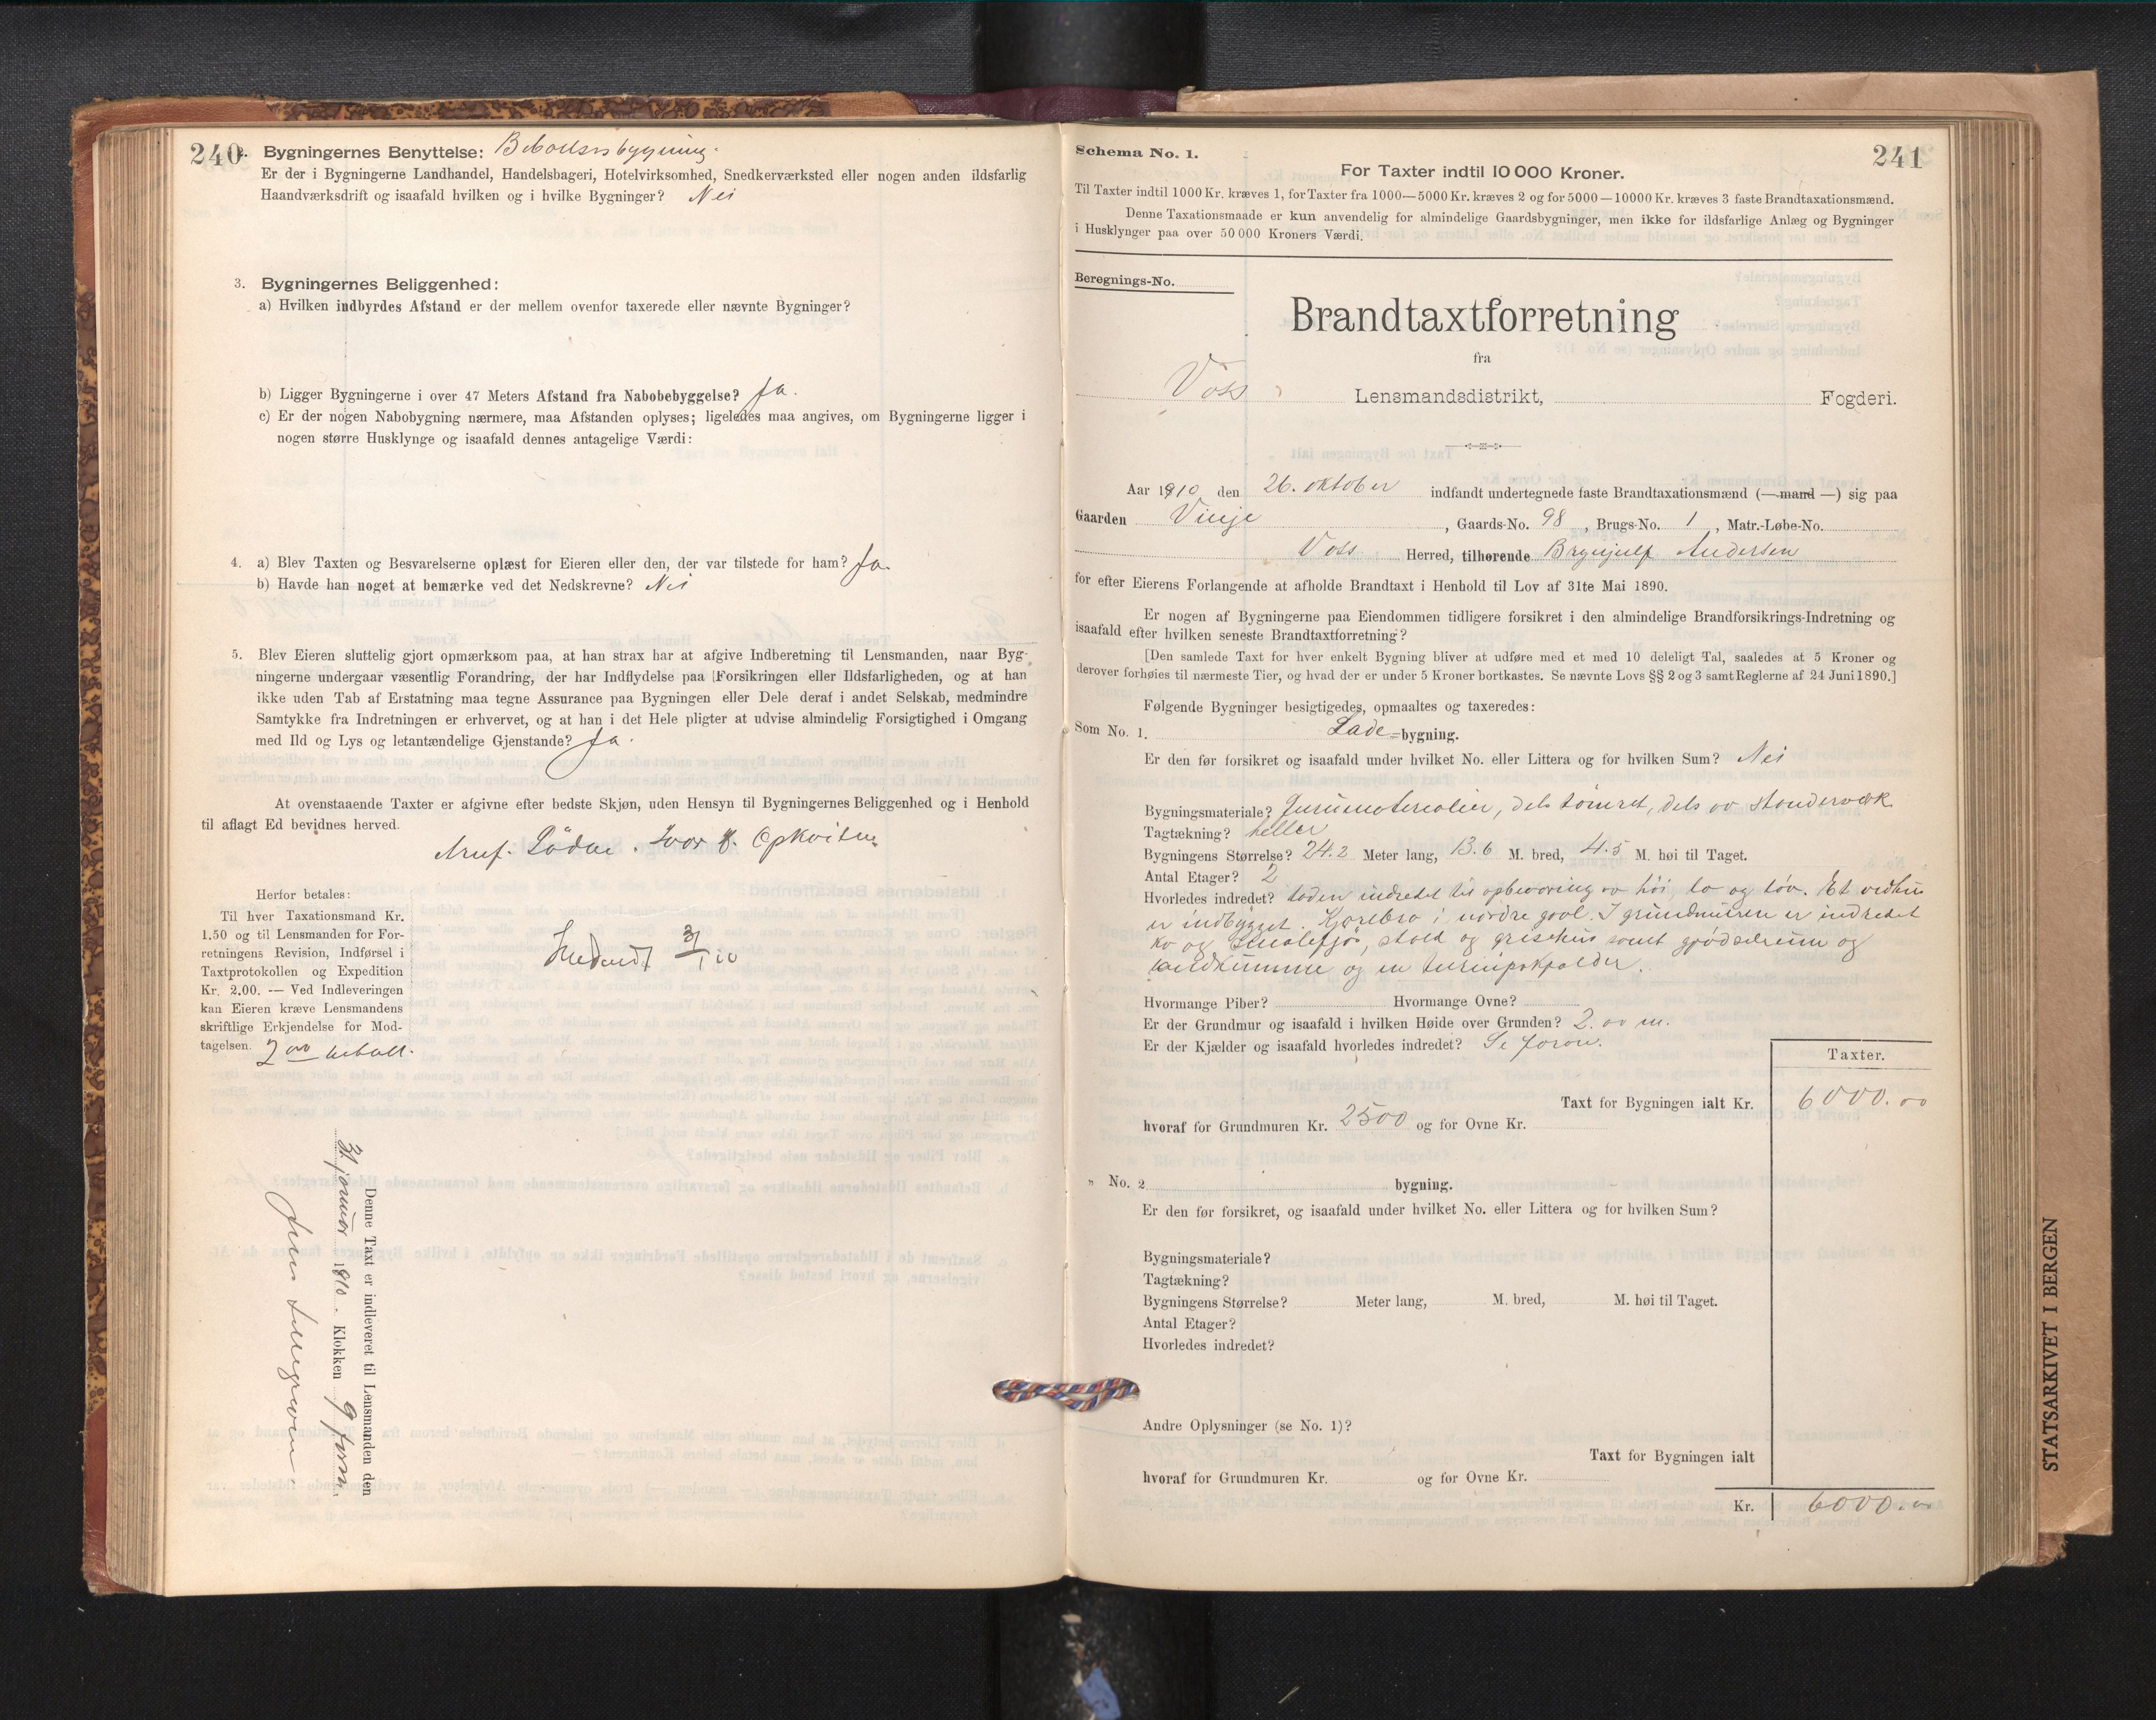 240
2. Bygningernes Benyttelse: Beboelsesbygning.
Er der i Bygningerne Landhandel, Handelsbageri, Hotelvirksomhed, Snedkerværksted eller nogen anden ildsfarlig
Haandværksdrift og isaafald hvilken og i hvilke Bygninger? Nei
3. Bygningernes Beliggenhed:
a) Hvilken indbyrdes Afstand er der mellem ovenfor taxerede eller nævnte Bygninger?
b) Ligger Bygningerne i over 47 Meters Afstand fra Nabobebyggelse? Ja.
c) Er der nogen Nabobygning nærmere, maa Afstanden oplyses; ligeledes maa angives, om Bygningerne ligger i
nogen større Husklynge og isaafald dennes antagelige Værdi:
4. a) Blev Taxten og Besvarelserne oplæst for Eieren eller den, der var tilstede for ham? Ja.
b) Havde han noget at bemærke ved det Nedskrevne? Nei
5. Blev Eieren sluttelig gjort opmærksom paa, at han strax har at afgive Indberetning til Lensmanden, naar Byg-
ningerne undergaar væsentlig Forandring, der har Indflydelse paa Forsikringen eller Ildsfarligheden, og at han
ikke uden Tab af Erstatning maa tegne Assurance paa Bygningen eller Dele deraf i andet Selskab, medmindre
Samtykke fra Indretningen er erhvervet, og at han i det Hele pligter at udvise almindelig Forsigtighed i Omgang
med Ild og Lys og letantændelige Gjenstande? Ja.
At ovenstaaende Taxter er afgivne efter bedste Skjøn, uden Hensyn til Bygningernes Beliggenhed og i Henhold
til aflagt Ed bevidnes herved.
Ivar Opkvitne
Herfor betales:
Til hver Taxationsmand Kr.
1,50 og til Lensmanden for For-
retningens Revision, Indførsel i
Taxtprotokollen og Expedition
Kr. 2,00. — Ved Indleveringen
kan Eieren kræve Lensmandens
skriftlige Erkjendelse for Mod-
tagelsen. 2 00 betalt.
Denne Taxt er indleveret til Lensmanden den
31 januar 1910. Klokken 9 form.
Jens Lillegraven
241
Schema No. 1.
For Taxter indtil 10 000 Kroner.
Til Taxter indtil 1000 Kr. kræves 1, for Taxter fra 1000—5000 Kr. kræves 2 og for 5000—10000 Kr. kræves 3 faste Brandtaxationsmænd.
Denne Taxationsmaade er kun anvendelig for almindelige Gaardsbygninger, men ikke for ildsfarlige Anlæg og Bygninger
i Husklynger paa over 50 000 Kroners Værdi.
Beregnings-No.
Brandtaxtforretning
fra
Voss Lensmandsdistrikt, Fogderi.
Aar 1910 den 26. oktober indfandt undertegnede faste Brandtaxationsmænd (—mand—) sig paa
Gaarden Vinje, Gaards-No. 98, Brugs-No. 1, Matr.-Løbe-No.
Voss Herred, tilhørende Brynjulf Andersen
for efter Eierens Forlangende at afholde Brandtaxt i Henhold til Lov af 31te Mai 1890.
Er nogen af Bygningerne paa Eiendommen tidligere forsikret i den almindelige Brandforsikrings-Indretning og
isaafald efter hvilken seneste Brandtaxtforretning?
[Den samlede Taxt for hver enkelt Bygning bliver at udføre med et med 10 deleligt Tal, saaledes at 5 Kroner og
derover forhøies til nærmeste Tier, og hvad der er under 5 Kroner bortkastes. Se nævnte Lovs §§ 2 og 3 samt Reglerne af 24 Juni 1890.]
Følgende Bygninger besigtigedes, opmaaltes og taxeredes:
Som No. 1. Lade=bygning.
Er den før forsikret og isaafald under hvilket No. eller Littera og for hvilken Sum? Nei
Bygningsmateriale? Furumaterialier, dels tømret, dels av standerværk.
Tagtækning? heller
Bygningens Størrelse? 24.2 Meter lang, 13.6 M. bred, 4.5 M. høi til Taget.
Antal Etager? 2
Hvorledes indredet? Laden indredet til opbevaring av høi, lo og løv. Et vedhus
er indbygget. Kjørebro i nordre gavl. I grundmuren er indredet
ko og smalefjøs, stald og grisehus samt gjødselrum og
landkumme og en turnipskjælder.
Hvormange Piber? Hvormange Ovne?
Er der Grundmur og isaafald i hvilken Høide over Grunden? 2.00 m.
Er der Kjælder og isaafald hvorledes indredet? Se foran.
Taxter.
Taxt for Bygningen ialt Kr. 6000.00
hvoraf for Grundmuren Kr. 2500 og for Ovne Kr.
" No. 2 bygning.
Er den før forsikret, og isaafald under hvilket No. eller Littera og for hvilken Sum?
Bygningsmateriale?
Tagtækning?
Bygningens Størrelse? Meter lang, M. bred, M. høi til Taget.
Antal Etager?
Hvorledes indredet?
Andre Oplysninger (se No. 1)?
Taxt for Bygningen ialt
hvoraf for Grundmuren Kr. og for Ovne Kr.
Kr. 6000.00
STATSARKIVET I BERGEN